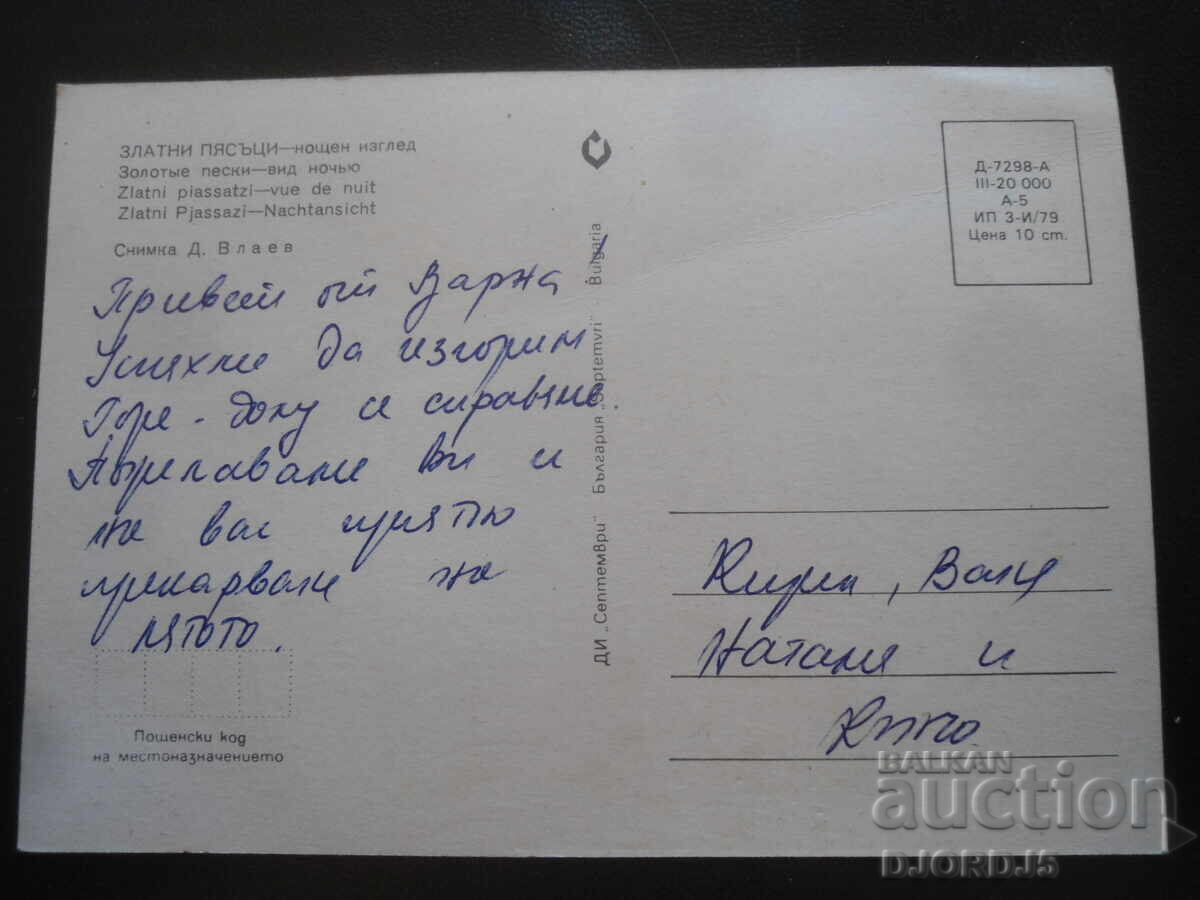 ЗЛАТНИ ПЯСЪЦИ—нощен изглед
Золотые пески—вид ночью
Zlatni piassatzi—vue de nuit
Zlatni Pjassazi—Nachtansicht
Снимка Д. Влаев
Привет от Варна
Успяхме да изгорим
Горе-долу се справяме.
Пожелаваме Ви и
на вас приятно
прекарване на
лятото.
Пощенски код
на местоназначението
ДИ „Септември" България „Septemvri" - Bulgaria
Д-7298-А
III-20 000
А-5
ИП 3-И/79
Цена 10 ст.
Ваня
Наталия и
BALKAN
auction
DJORDJ5